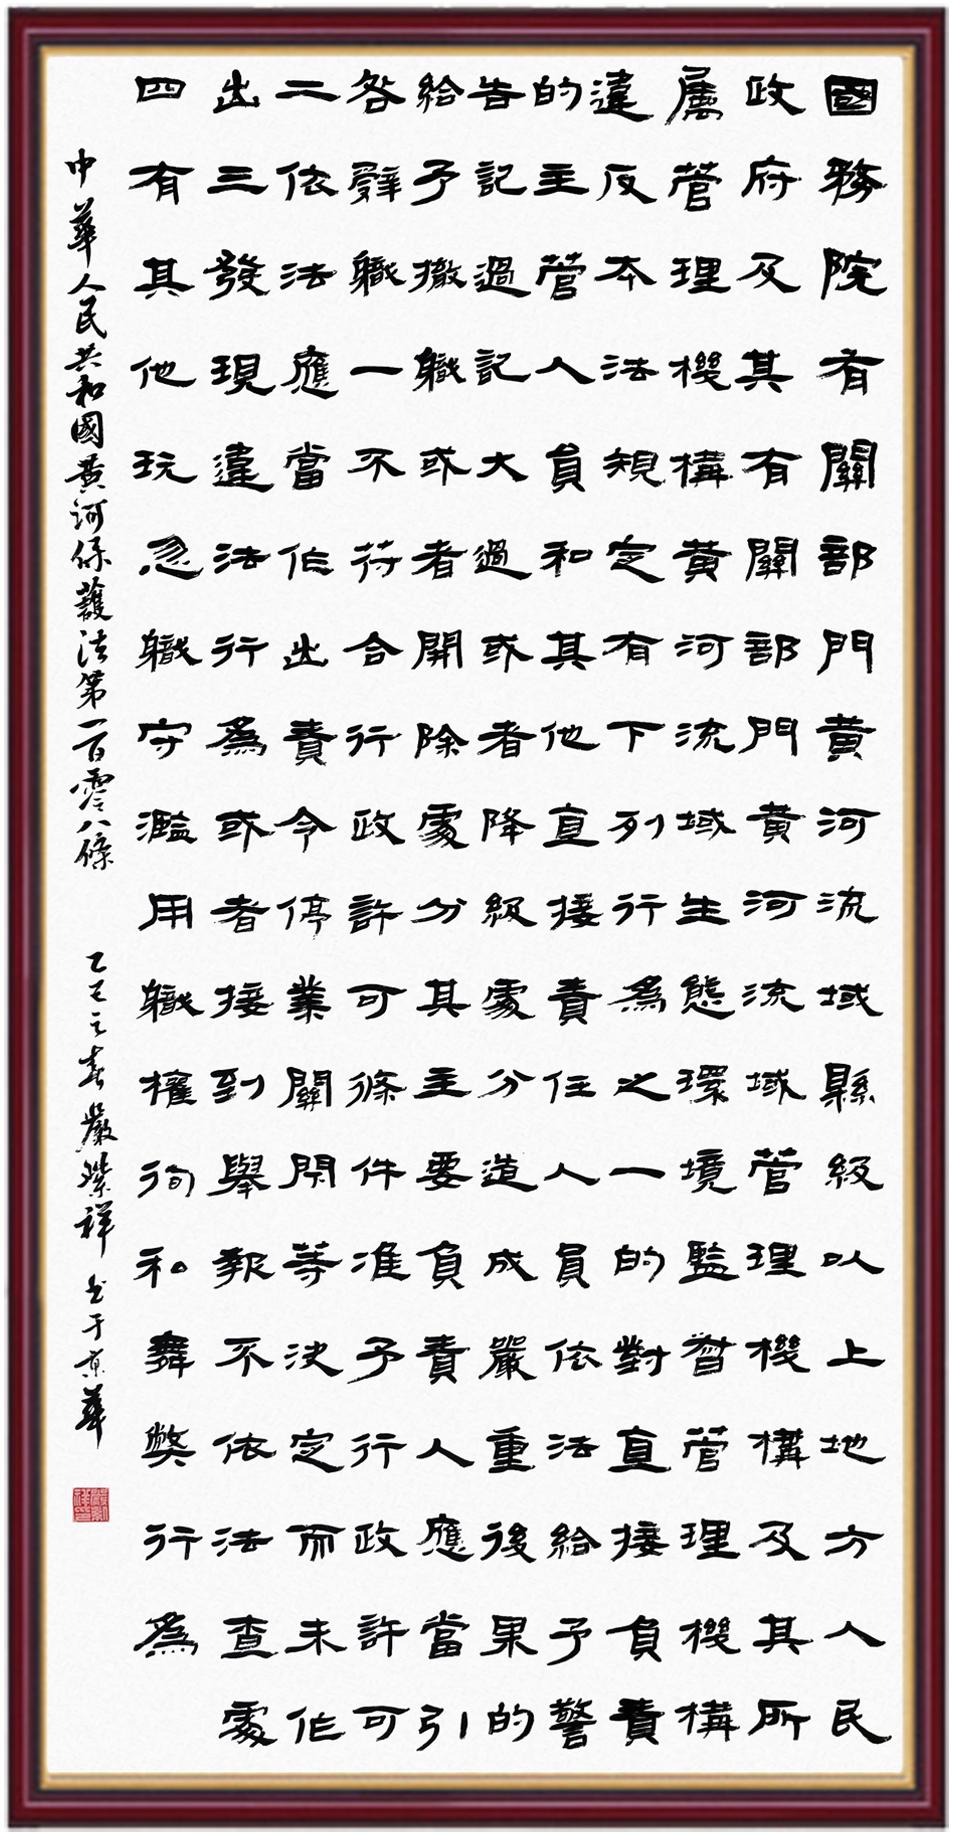 國務院有關部門黃河流域縣級以上地方人民
政府及其有關部門黃河流域管理機構及其所
屬管理機構黃河流域生態環境監督管理機構
違反本法規定有下列行為之一的對直接負責
的主管人員和其他直接責任人員依法給予警
告記過記大過或者降級處分造成嚴重後果的
給予撤職或者開除處分其主要負責人應當引
咎辭職一不符合行政許可條件准予行政許可
二依法應當作出責令停業關閉等決定而未作
出三發現違法行為或者接到舉報不依法查處
四有其他玩忽職守濫用職權徇私舞弊行為
中華人民共和國黃河保護法第一百零八條 乙巳之春 嚴祥 书于京華